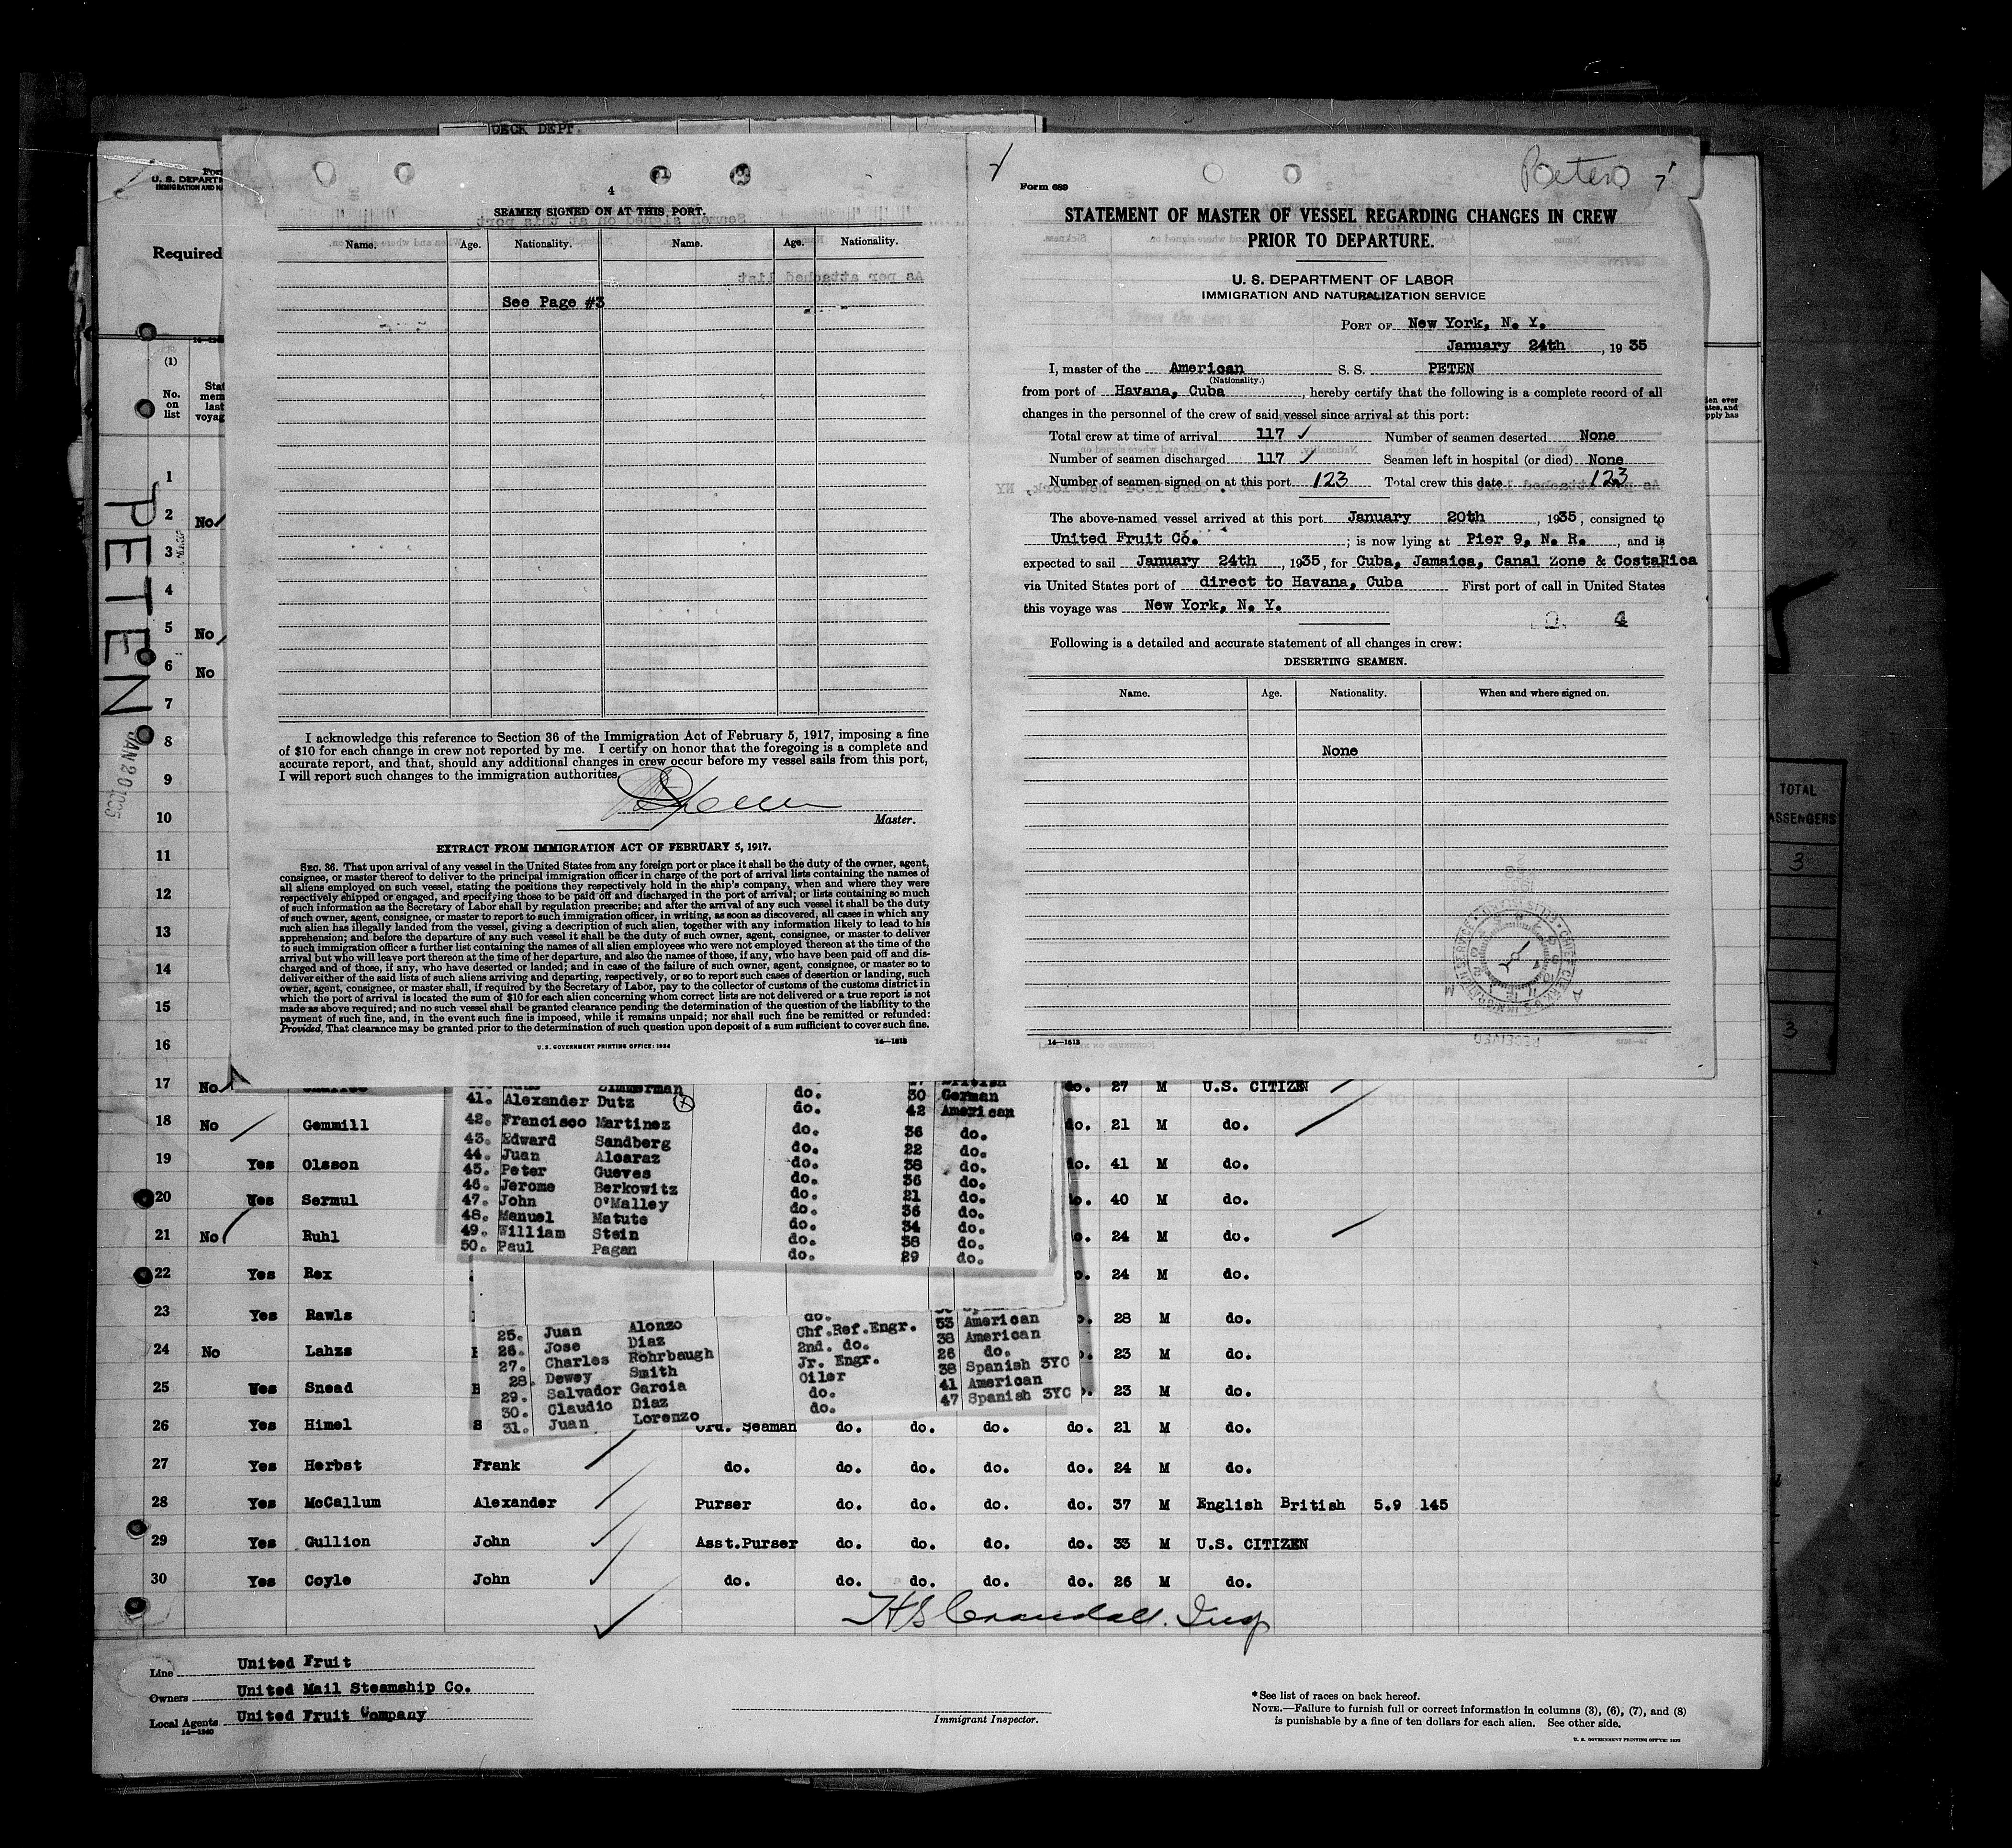 DECK DEPT.
4
SEAMEN SIGNED ON AT THIS PORT.
Name. Age. Nationality. Name. Age. Nationality.
See Page #3
I acknowledge this reference to Section 36 of the Immigration Act of February 5, 1917, imposing a fine
of $10 for each change in crew not reported by me. I certify on honor that the foregoing is a complete and
accurate report, and that, should any additional changes in crew occur before my vessel sails from this port,
I will report such changes to the immigration authorities.
Master.
EXTRACT FROM IMMIGRATION ACT OF FEBRUARY 5, 1917.
SEC. 36. That upon arrival of any vessel in the United States from any foreign port or place it shall be the duty of the owner, agent,
consignee, or master thereof to deliver to the principal immigration officer in charge of the port of arrival lists containing the names of
all aliens employed on such vessel, stating the positions they respectively hold in the ship's company, when and where they were
respectively shipped or engaged, and specifying those to be paid off and discharged in the port of arrival; or lists containing so much
of such information as the Secretary of Labor shall by regulation prescribe; and after the arrival of any such vessel it shall be the duty
of such owner, agent, consignee, or master to report to such immigration officer, in writing, as soon as discovered, all cases in which any
such alien has illegally landed from the vessel, giving a description of such alien, together with any information likely to lead to his
apprehension; and before the departure of any such vessel it shall be the duty of such owner, agent, consignee, or master to deliver
to such immigration officer a further list containing the names of all alien employees who were not employed thereon at the time of the
arrival but who will leave port thereon at the time of her departure, and also the names of those, if any, who have been paid off and dis-
charged and of those, if any, who have deserted or landed; and in case of the failure of such owner, agent, consignee, or master so to
deliver either of the said lists of such aliens arriving and departing, respectively, or so to report such cases of desertion or landing, such
owner, agent, consignee, or master shall, if required by the Secretary of Labor, pay to the collector of customs of the customs district in
which the port of arrival is located the sum of $10 for each alien concerning whom correct lists are not delivered or a true report is not
made as above required; and no such vessel shall be granted clearance pending the determination of the question of the liability to the
payment of such fine, and, in the event such fine is imposed, while it remains unpaid; nor shall such fine be remitted or refunded:
Provided, That clearance may be granted prior to the determination of such question upon deposit of a sum sufficient to cover such fine.
U. S. GOVERNMENT PRINTING OFFICE: 1934 14—1613
Peten
Form 689
STATEMENT OF MASTER OF VESSEL REGARDING CHANGES IN CREW
PRIOR TO DEPARTURE.
U. S. DEPARTMENT OF LABOR
IMMIGRATION AND NATURALIZATION SERVICE
PORT OF New York, N. Y.
January 24th, 1935
I, master of the American S. S. PETEN
(Nationality.)
from port of Havana, Cuba, hereby certify that the following is a complete record of all
changes in the personnel of the crew of said vessel since arrival at this port:
Total crew at time of arrival 117 ✓ Number of seamen deserted None
Number of seamen discharged 117 ✓ Seamen left in hospital (or died) None
Number of seamen signed on at this port 123 Total crew this date 123
The above-named vessel arrived at this port January 20th, 1935, consigned to
United Fruit Co.; is now lying at Pier 9, N. R., and is
expected to sail January 24th, 1935, for Cuba, Jamaica, Canal Zone & CostaRica
via United States port of direct to Havana, Cuba First port of call in United States
this voyage was New York, N. Y.
4
Following is a detailed and accurate statement of all changes in crew:
DESERTING SEAMEN.
Name. Age. Nationality. When and where signed on.
None
14—1613
Form
U. S. DEPARTM
IMMIGRATION AND NA
Required
(1)
No. on list
PETEN
JAN 20 1935
1
2 No
3
4
5 No
6 No
7
8
9
10
11
12
13
14
15
16
TOTAL
PASSENGERS
3
3
17 No do. 27 M U.S. CITIZEN
18 No Gemmill do. 21 M do.
19 Yes Olsson do. 41 M do.
20 Yes Sermul do. 40 M do.
21 No Ruhl do. 24 M do.
22 Yes Rex do. 24 M do.
23 Yes Rawls 28 M do.
24 No Lahzs 23 M do.
25 Yes Snead 23 M do.
26 Yes Himel S Ord. Seaman do. do. do. do. 21 M do.
27 Yes Herbst Frank do. do. do. do. do. 24 M do.
28 Yes McCallum Alexander Purser do. do. do. do. 37 M English British 5.9 145
29 Yes Gullion John Asst.Purser do. do. do. do. 33 M U.S. CITIZEN
30 Yes Coyle John do. do. do. do. do. 26 M do.
Zimmerman British
41. Alexander Dutz do. 30 German
42. Francisco Martinez do. 42 American
43. Edward Sandberg do. 36 do.
44. Juan Alcaraz do. 22 do.
45. Peter Gueves do. 38 do.
46. Jerome Berkowitz do. 36 do.
47. John O'Malley do. 21 do.
48. Manuel Matute do. 36 do.
49. William Stein do. 34 do.
50. Paul Pagan do. 38 do.
do. 29 do.
25. Juan Alonzo do.
26. Jose Diaz Chf.Ref.Engr. 53 American
27. Charles Rohrbaugh 2nd. do. 38 American
28. Dewey Smith Jr. Engr. 26 do.
29. Salvador Garcia Oiler 38 Spanish 3YC
30. Claudio Diaz do. 41 American
31. Juan Lorenzo do. 47 Spanish 3YC
HS Crandall. Insp
Line United Fruit
Owners United Mail Steamship Co.
Local Agents United Fruit Company
14—1240
Immigrant Inspector.
*See list of races on back hereof.
NOTE.—Failure to furnish full or correct information in columns (3), (6), (7), and (8)
is punishable by a fine of ten dollars for each alien. See other side.